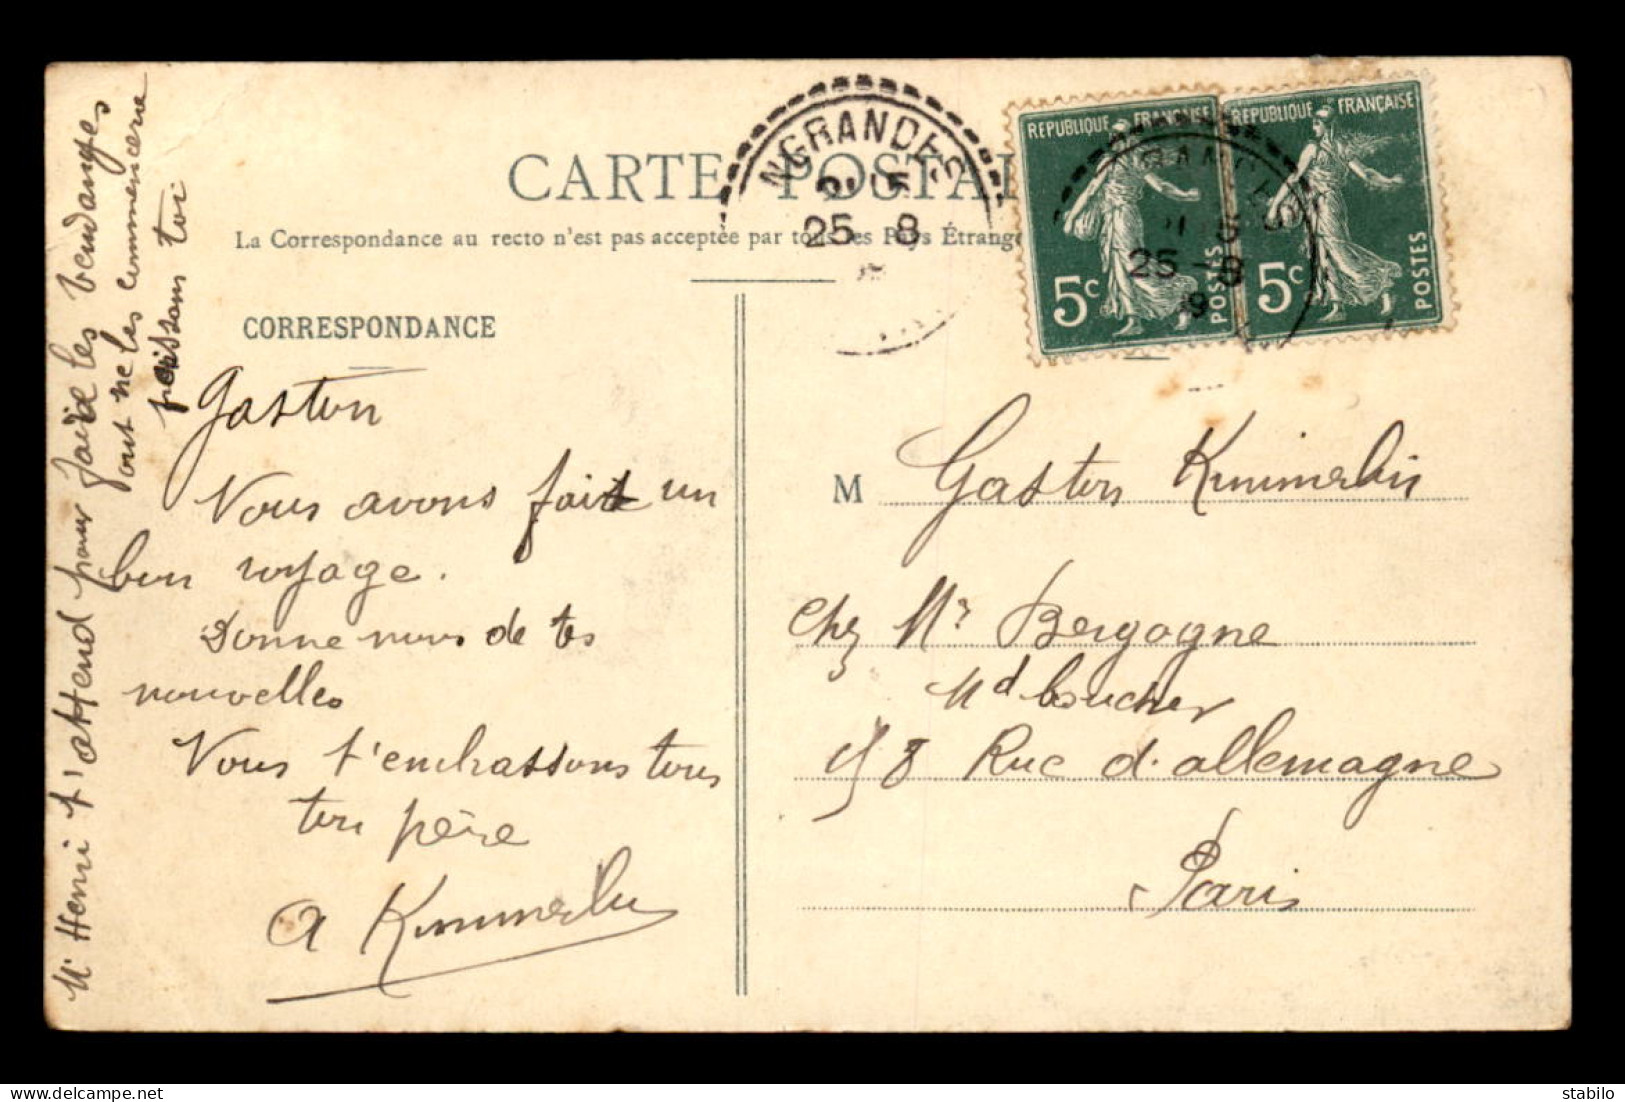 CARTE POSTA
La Correspondance au recto n'est pas acceptée par tous les Pays Étrange
CORRESPONDANCE
NGRANDES
25 8
REPUBLIQUE FRANÇAISE
5c
POSTES
25 - 8
REPUBLIQUE FRANÇAISE
5c
POSTES
Gaston
Nous avons fait un
bon voyage.
Donne nous de tes
nouvelles
Nous t'embrassons tous
ton père
A Kimmerlin
Mr Henri t'attend pour faire les vendanges
ont ne les commencera
pas sans toi
M Gaston Kimmerlin
chez Mr Bergogne
Md boucher
58 Rue d'allemagne
Paris
stabilo